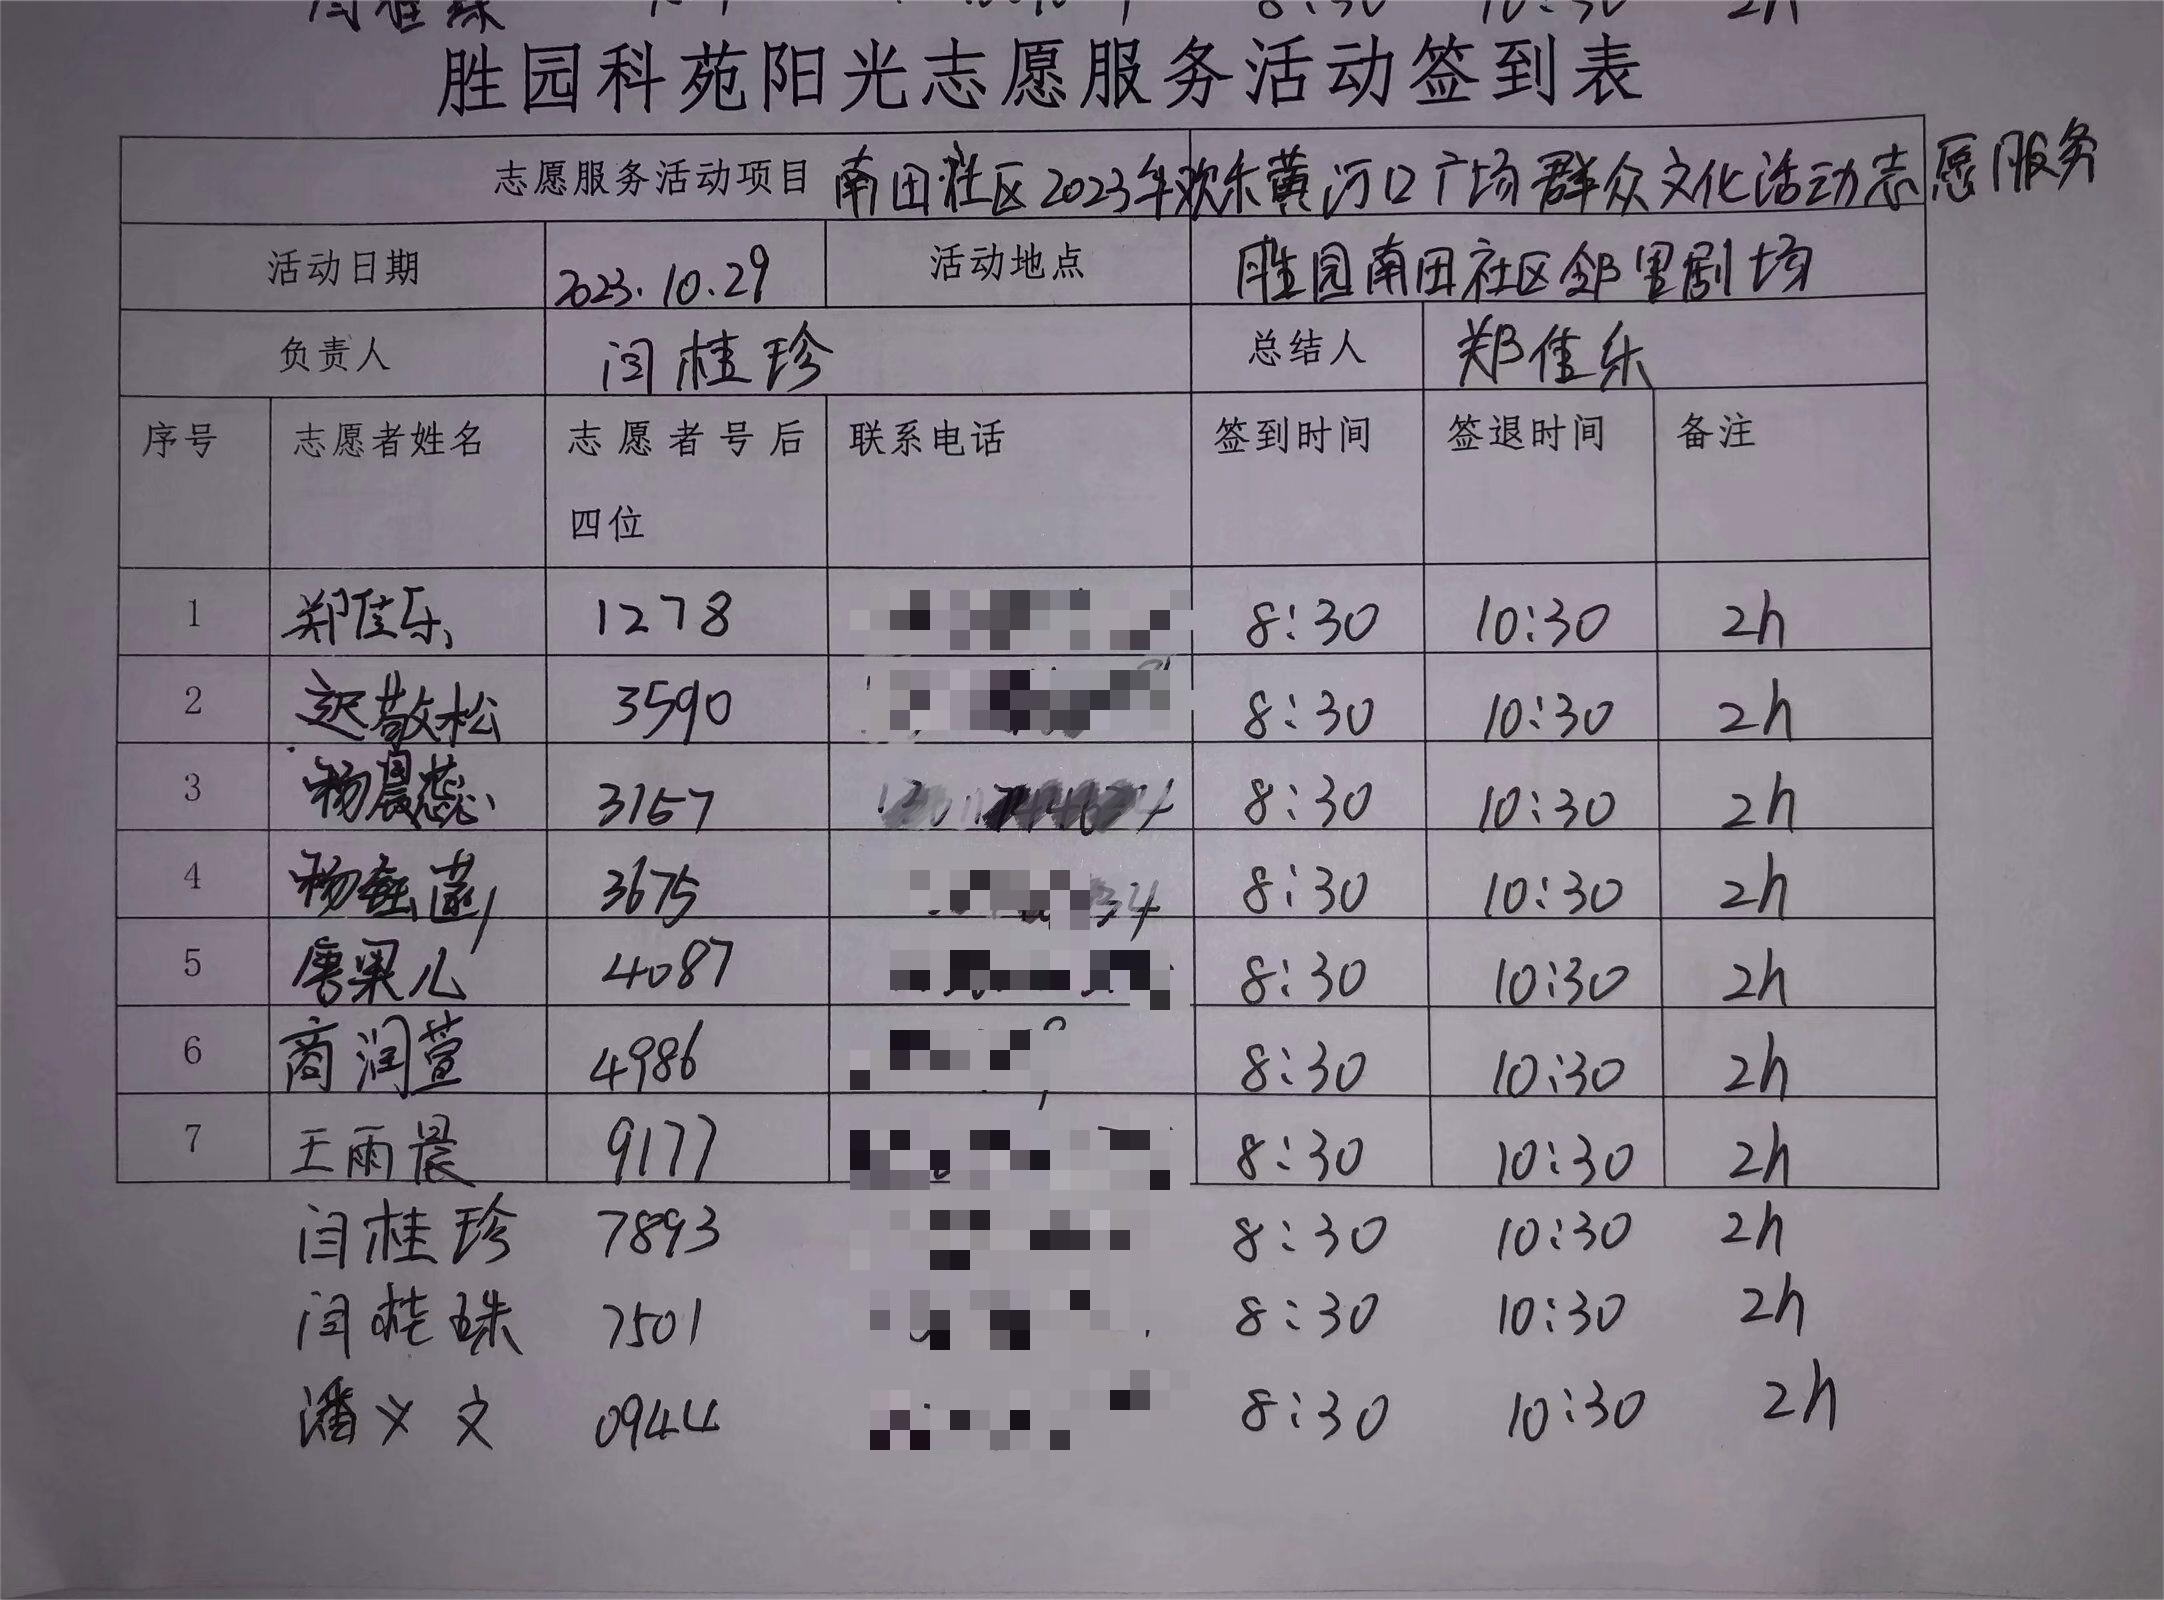 8:30 10:30 2h
胜园科苑阳光志愿服务活动签到表
志愿服务活动项目 南田社区2023年欢乐黄河口广场群众文化活动志愿服务
活动日期 2023.10.29 活动地点 胜园南田社区邻里剧场
负责人 闫桂珍 总结人 郑佳乐
序号 志愿者姓名 志愿者号后四位 联系电话 签到时间 签退时间 备注
1 郑佳乐 1278 8:30 10:30 2h
2 迟敬松 3590 8:30 10:30 2h
3 杨晨蕊 3157 8:30 10:30 2h
4 杨 3675 8:30 10:30 2h
5 唐果儿 4087 8:30 10:30 2h
6 商润萱 4986 8:30 10:30 2h
7 王雨晨 9177 8:30 10:30 2h
闫桂珍 7893 8:30 10:30 2h
闫桂珠 7501 8:30 10:30 2h
潘义文 0944 8:30 10:30 2h